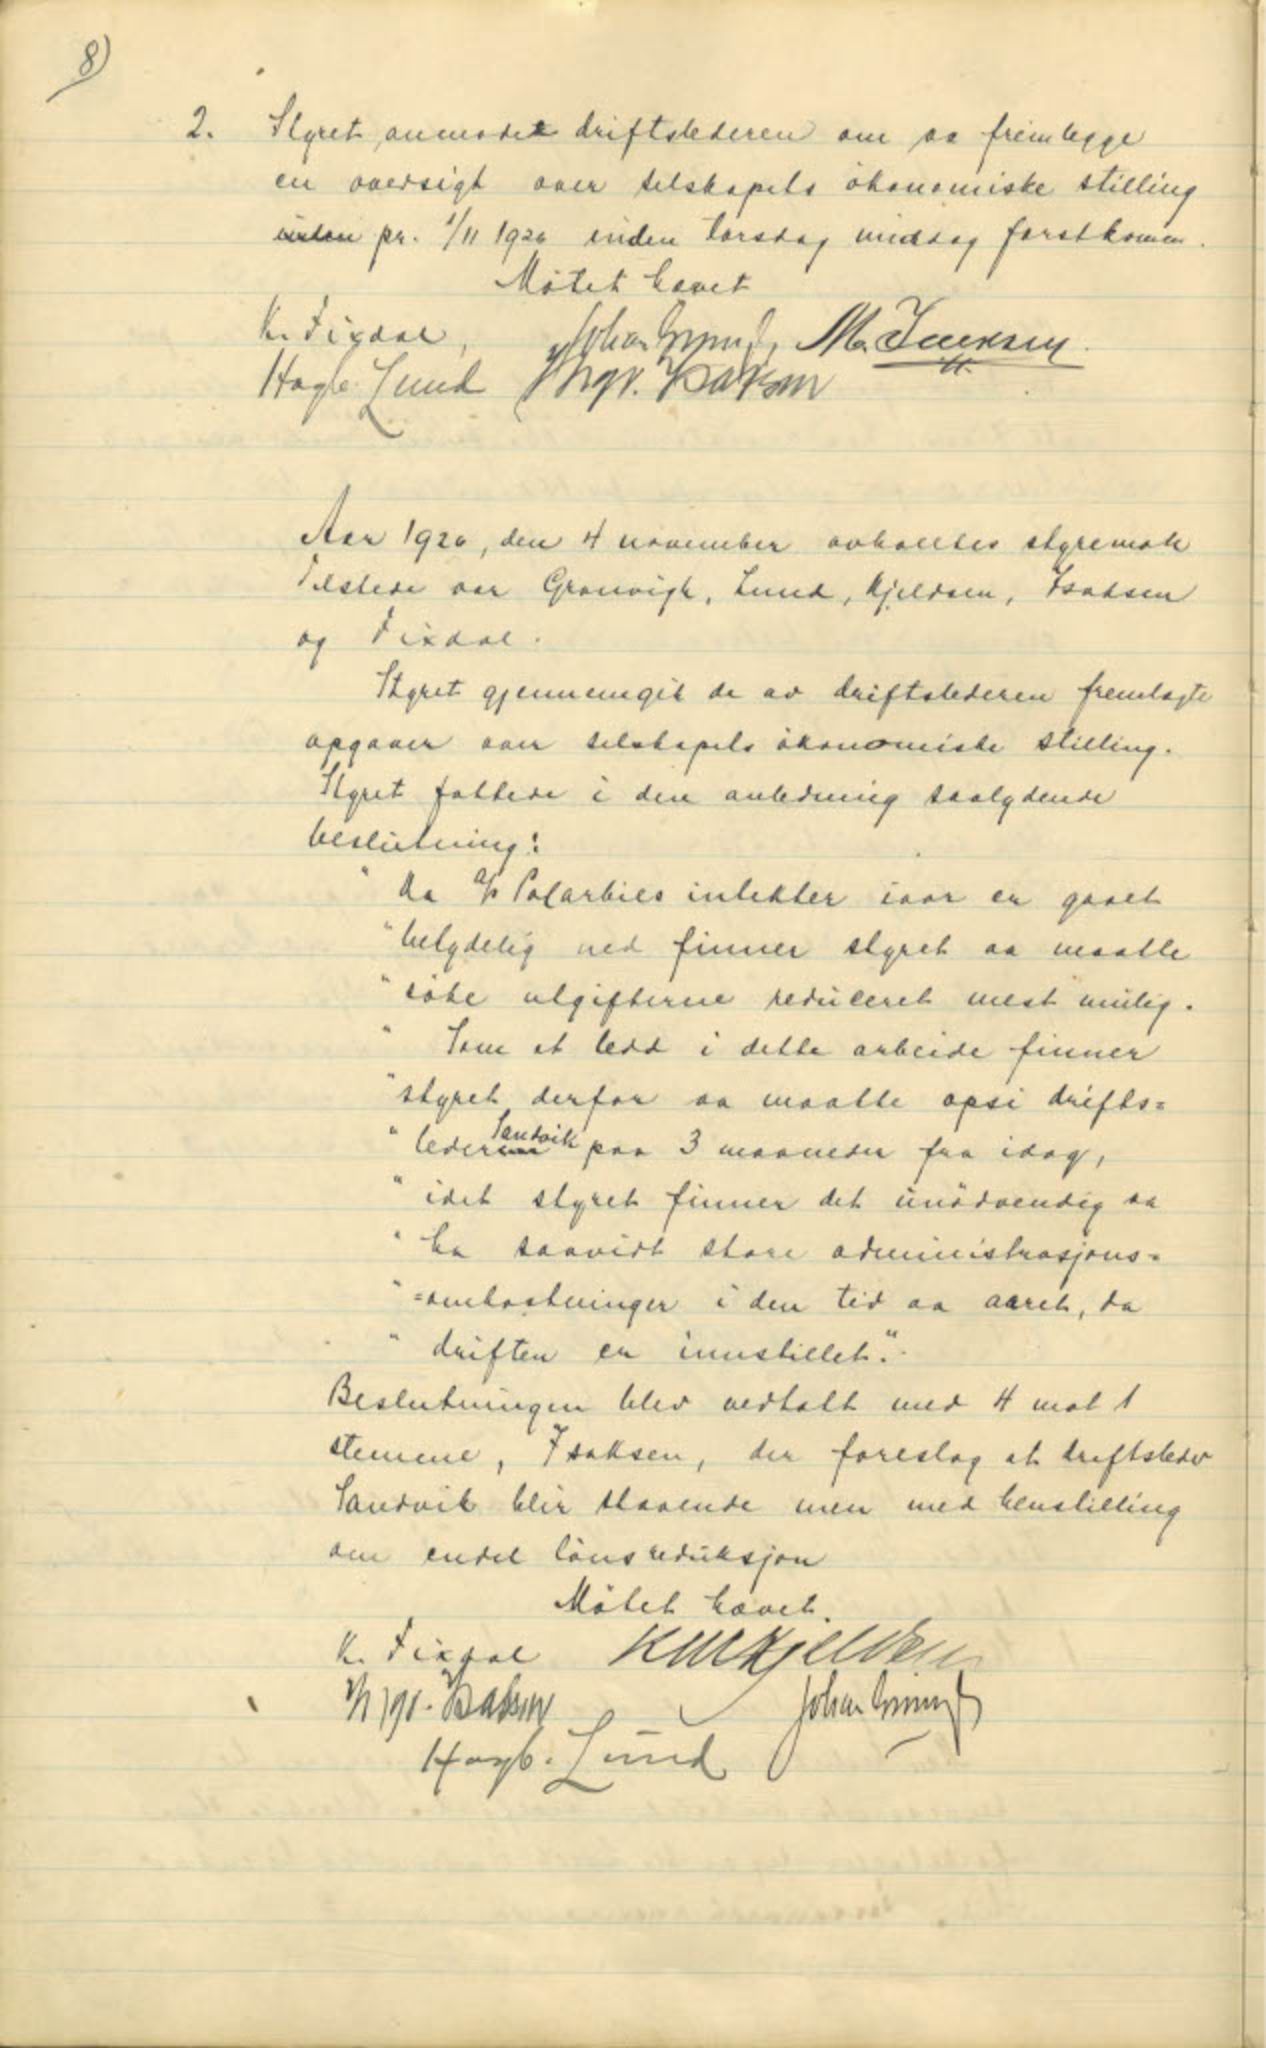 8)
2. Styret anmodet driftslederen om aa fremlegge
en oversigt over selskapets økonomiske stilling
inden pr. 1/11 1920 inden torsdag middag førstkomm.
Møtet hævet
K. Fixdal,
Hagb. Lund Yngv. Isaksen
Aar 1920, den 4 november avholdtes styremøte
Tilstede var Grønvigh, Lund, Kjeldsen, Isaksen
og Fixdal.
Styret gjennemgik de av driftslederen fremlagte
opgaver over selskapets økonomiske stilling.
Styret fattede i den anledning saalydende
beslutning:
" Da A/S Polarbils intekter iaar er gaaet
" betydelig ned finner styret aa maatte
" søke utgifterne reduceret mest mulig.
" Som et ledd i dette arbeide finner
" styret derfor aa maatte opsi drifts=
" leder Sandvik paa 3 maaneder fra idag,
" idet styret finner det unødvendig aa
" ha saavidt store administrasjons=
" =omkostninger i den tid aa aaret, da
" driften er innstillet."
Beslutningen blev vedtatt med 4 mot 1
stemme, Isaksen, der foreslog at driftsleder
Sandvik blir staaende men med henstilling
om endel lønsreduksjon
Møtet hævet.
K. Fixdal KM Kjeldsen
Yngv. Isaksen
Hagb. Lund